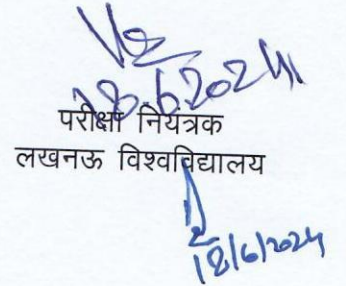 18.6.2024
परीक्षा नियंत्रक
लखनऊ विश्वविद्यालय
18/6/2024